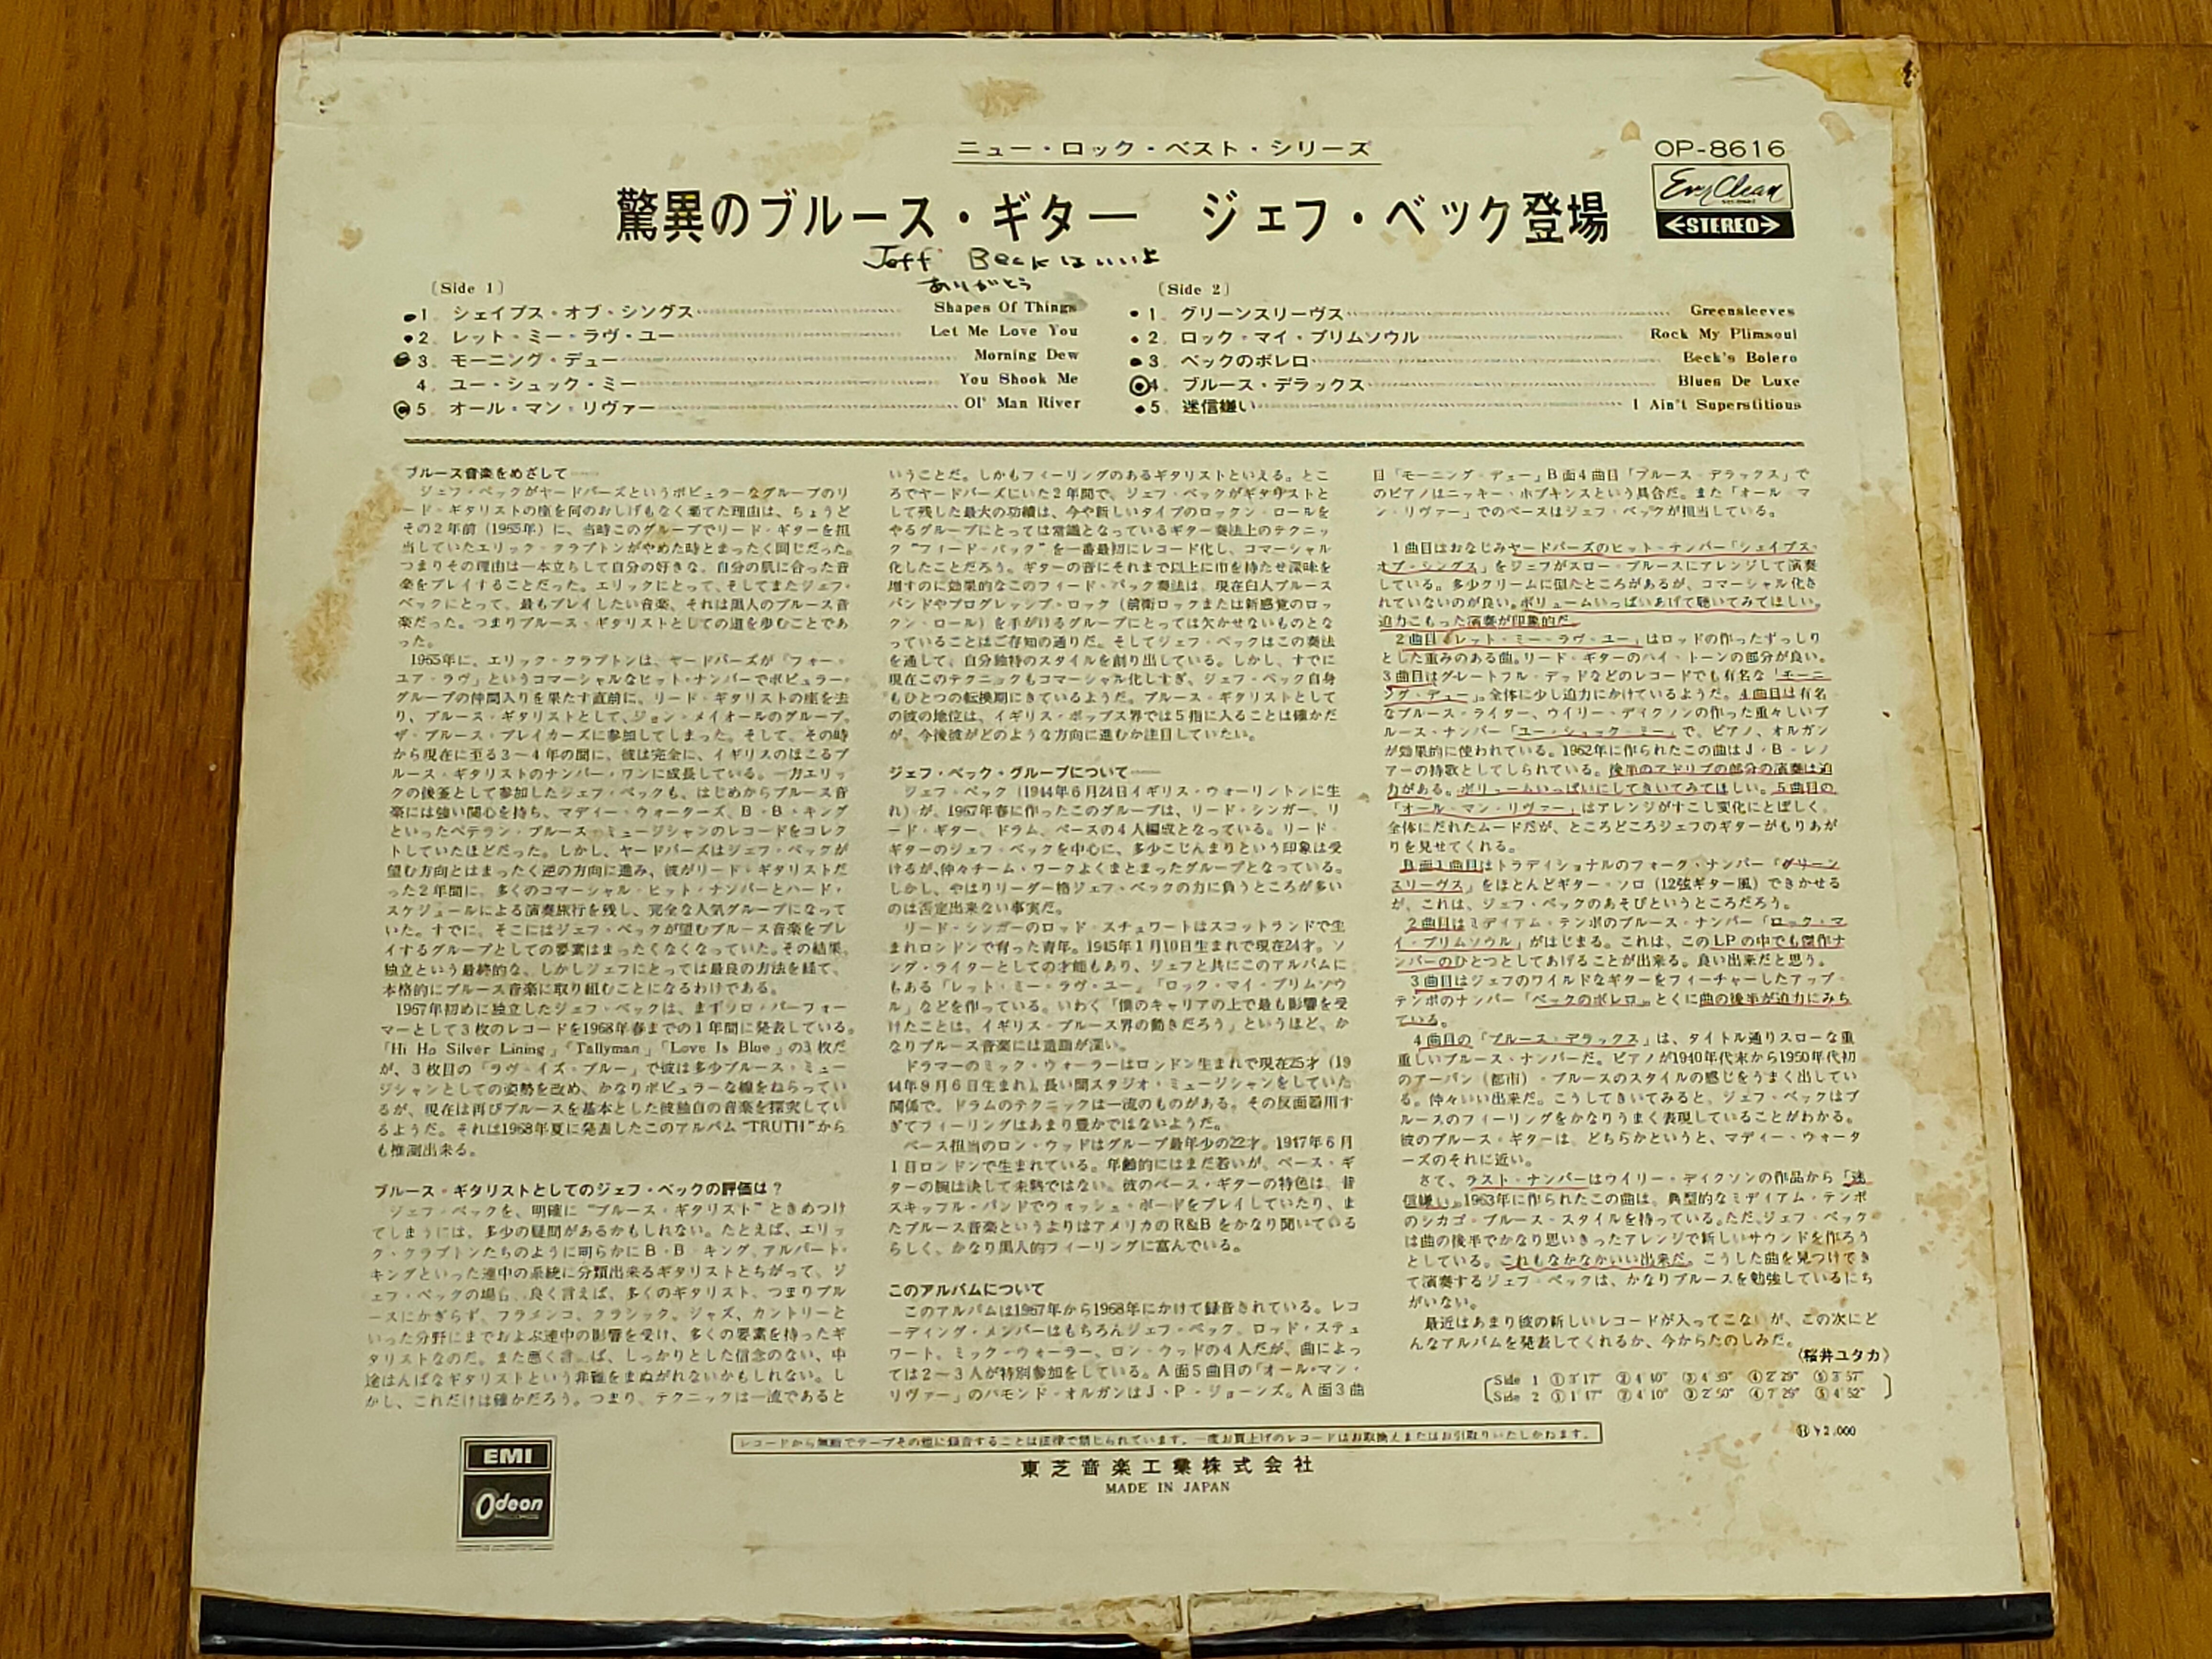 ニュー・ロック・ベスト・シリーズ
OP-8616
Ever Clean
STEREO
驚異のブルース・ギター ジェフ・ベック登場
Jeff Beckはいいよ
ありがとう
〔Side 1〕
1. シェイプス・オブ・シングス Shapes Of Things
2. レット・ミー・ラヴ・ユー Let Me Love You
3. モーニング・デュー Morning Dew
4. ユー・シュック・ミー You Shook Me
5. オール・マン・リヴァー Ol' Man River
〔Side 2〕
1. グリーンスリーヴス Greensleeves
2. ロック・マイ・プリムソウル Rock My Plimsoul
3. ベックのボレロ Beck's Bolero
4. ブルース・デラックス Blues De Luxe
5. 迷信嫌い I Ain't Superstitious
ブルース音楽をめざして……
ジェフ・ベックがヤードバーズというポピュラーなグループのリ
ード・ギタリストの座を何のおしげもなく棄てた理由は、ちょうど
その2年前（1965年）に、当時このグループでリード・ギターを担
当していたエリック・クラプトンがやめた時とまったく同じだった。
つまりその理由は一本立ちして自分の好きな、自分の肌に合った音
楽をプレイすることだった。エリックにとって、そしてまたジェフ・
ベックにとって、最もプレイしたい音楽、それは黒人のブルース音
楽だった。つまりブルース・ギタリストとしての道を歩むことであ
った。
1965年に、エリック・クラプトンは、ヤードバーズが「フォー・
ユア・ラヴ」というコマーシャルなヒット・ナンバーでポピュラー・
グループの仲間入りを果たす直前に、リード・ギタリストの座を去
り、ブルース・ギタリストとして、ジョン・メイオールのグループ、
ザ・ブルース・ブレイカーズに参加してしまった。そして、その時
から現在に至る3〜4年の間に、彼は完全に、イギリスのほこるブ
ルース・ギタリストのナンバー・ワンに成長している。一方エリッ
クの後釜として参加したジェフ・ベックも、はじめからブルース音
楽には強い関心を持ち、マディー・ウォーターズ、B・B・キング
といったベテラン・ブルース・ミュージシャンのレコードをコレク
トしていたほどだった。しかし、ヤードバーズはジェフ・ベックが
望む方向とはまったく逆の方向に進み、彼がリード・ギタリストだ
った2年間に、多くのコマーシャル・ヒット・ナンバーとハード・
スケジュールによる演奏旅行を残し、完全な人気グループになって
いた。すでに、そこにはジェフ・ベックが望むブルース音楽をプレ
イするグループとしての要素はまったくなくなっていた。その結果、
独立という最終的な、しかしジェフにとっては最良の方法を経て、
本格的にブルース音楽に取り組むことになるわけである。
1967年初めに独立したジェフ・ベックは、まずソロ・パーフォー
マーとして3枚のレコードを1968年春までの1年間に発表している。
「Hi Ho Silver Lining」「Tallyman」「Love Is Blue」の3枚だ
が、3枚目の「ラヴ・イズ・ブルー」で彼は多少ブルース・ミュー
ジシャンとしての姿勢を改め、かなりポピュラーな線をねらってい
るが、現在は再びブルースを基本とした彼独自の音楽を探究してい
るようだ。それは1968年夏に発表したこのアルバム“TRUTH”から
も推測出来る。
ブルース・ギタリストとしてのジェフ・ベックの評価は？
ジェフ・ベックを、明確に“ブルース・ギタリスト”ときめつけ
てしまうには、多少の疑問があるかもしれない。たとえば、エリッ
ク・クラプトンたちのように明らかにB・B・キング、アルバート・
キングといった連中の系統に分類出来るギタリストとちがって、ジ
ェフ・ベックの場合、良く言えば、多くのギタリスト、つまりブル
ースにかぎらず、フラメンコ、クラシック、ジャズ、カントリーと
いった分野にまでおよぶ連中の影響を受け、多くの要素を持ったギ
タリストなのだ。また悪く言えば、しっかりとした信念のない、中
途はんぱなギタリストという非難をまぬがれないかもしれない。し
かし、これだけは確かだろう。つまり、テクニックは一流であると
いうことだ。しかもフィーリングのあるギタリストといえる。とこ
ろでヤードバーズにいた2年間で、ジェフ・ベックがギタリストと
して残した最大の功績は、今や新しいタイプのロックン・ロールを
やるグループにとっては常識となっているギター奏法上のテクニッ
ク“フィード・バック”を一番最初にレコード化し、コマーシャル
化したことだろう。ギターの音にそれまで以上に巾を持たせ深味を
増すのに効果的なこのフィード・バック奏法は、現在白人ブルース
バンドやプログレッシブ・ロック（前衛ロックまたは新感覚のロッ
クン・ロール）を手がけるグループにとっては欠かせないものとな
っていることはご存知の通りだ。そしてジェフ・ベックはこの奏法
を通して、自分独特のスタイルを創り出している。しかし、すでに
現在このテクニックもコマーシャル化しすぎ、ジェフ・ベック自身
もひとつの転換期にきているようだ。ブルース・ギタリストとして
の彼の地位は、イギリス・ポップス界では5指に入ることは確かだ
が、今後彼がどのような方向に進むか注目していたい。
ジェフ・ベック・グループについて……
ジェフ・ベック（1944年6月24日イギリス・ウォーリントンに生
れ）が、1967年春に作ったこのグループは、リード・シンガー、リ
ード・ギター、ドラム、ベースの4人編成となっている。リード・
ギターのジェフ・ベックを中心に、多少こじんまりという印象は受
けるが、仲々チーム・ワークよくまとまったグループとなっている。
しかし、やはりリーダー格ジェフ・ベックの力に負うところが多い
のは否定出来ない事実だ。
リード・シンガーのロッド・スチュワートはスコットランドで生
まれロンドンで育った青年。1945年1月10日生まれで現在24才。ソ
ング・ライターとしての才能もあり、ジェフと共にこのアルバムに
もある「レット・ミー・ラヴ・ユー」「ロック・マイ・プリムソウ
ル」などを作っている。いわく「僕のキャリアの上で最も影響を受
けたことは、イギリス・ブルース界の動きだろう」というほど、か
なりブルース音楽には造詣が深い。
ドラマーのミック・ウォーラーはロンドン生まれで現在25才（19
44年9月6日生まれ）。長い間スタジオ・ミュージシャンをしていた
関係で、ドラムのテクニックは一流のものがある。その反面器用す
ぎてフィーリングはあまり豊かではないようだ。
ベース担当のロン・ウッドはグループ最年少の22才。1947年6月
1日ロンドンで生まれている。年齢的にはまだ若いが、ベース・ギ
ターの腕は決して未熟ではない。彼のベース・ギターの特色は、昔
スキッフル・バンドでウォッシュ・ボードをプレイしていたり、ま
たブルース音楽というよりはアメリカのR&Bをかなり聞いている
らしく、かなり黒人的フィーリングに富んでいる。
このアルバムについて
このアルバムは1967年から1968年にかけて録音されている。レコ
ーディング・メンバーはもちろんジェフ・ベック、ロッド・ステュ
ワート、ミック・ウォーラー、ロン・ウッドの4人だが、曲によっ
ては2〜3人が特別参加をしている。A面5曲目の「オール・マン・
リヴァー」のハモンド・オルガンはJ・P・ジョーンズ。A面3曲
目「モーニング・デュー」B面4曲目「ブルース・デラックス」で
のピアノはニッキー・ホプキンスという具合だ。また「オール・マ
ン・リヴァー」でのベースはジェフ・ベックが担当している。
1曲目はおなじみヤードバーズのヒット・ナンバー「シェイプス・
オブ・シングス」をジェフがスロー・ブルースにアレンジして演奏
している。多少クリームに似たところがあるが、コマーシャル化さ
れていないのが良い。ボリュームいっぱいあげて聴いてみてほしい。
迫力こもった演奏が印象的だ。
2曲目「レット・ミー・ラヴ・ユー」はロッドの作ったずっしり
とした重みのある曲。リード・ギターのハイ・トーンの部分が良い。
3曲目はグレートフル・デッドなどのレコードでも有名な「モーニ
ング・デュー」。全体に少し迫力にかけているようだ。4曲目は有名
なブルース・ライター、ウイリー・ディクソンの作った重々しいブ
ルース・ナンバー「ユー・シュック・ミー」で、ピアノ、オルガン
が効果的に使われている。1962年に作られたこの曲はJ・B・レノ
アーの持歌としてしられている。後半のアドリブの部分の演奏は迫
力がある。ボリュームいっぱいにしてきいてみてほしい。5曲目の
「オール・マン・リヴァー」はアレンジがすこし変化にとぼしく、
全体にだれたムードだが、ところどころジェフのギターがもりあが
りを見せてくれる。
B面1曲目はトラディショナルのフォーク・ナンバー「グリーン
スリーヴス」をほとんどギター・ソロ（12弦ギター風）できかせる
が、これは、ジェフ・ベックのあそびというところだろう。
2曲目はミディアム・テンポのブルース・ナンバー「ロック・マ
イ・プリムソウル」がはじまる。これは、このLPの中でも傑作ナ
ンバーのひとつとしてあげることが出来る。良い出来だと思う。
3曲目はジェフのワイルドなギターをフィーチャーしたアップ・
テンポのナンバー「ベックのボレロ」。とくに曲の後半が迫力にみち
ている。
4曲目の「ブルース・デラックス」は、タイトル通りスローな重
重しいブルース・ナンバーだ。ピアノが1940年代末から1950年代初
のアーバン（都市）・ブルースのスタイルの感じをうまく出してい
る。仲々いい出来だ。こうしてきいてみると、ジェフ・ベックはブ
ルースのフィーリングをかなりうまく表現していることがわかる。
彼のブルース・ギターは、どちらかというと、マディー・ウォータ
ーズのそれに近い。
さて、ラスト・ナンバーはウイリー・ディクソンの作品から「迷
信嫌い」。1963年に作られたこの曲は、典型的なミディアム・テンポ
のシカゴ・ブルース・スタイルを持っている。ただ、ジェフ・ベック
は曲の後半でかなり思いきったアレンジで新しいサウンドを作ろう
としている。これもなかなかいい出来だ。こうした曲を見つけてき
て演奏するジェフ・ベックは、かなりブルースを勉強しているにち
がいない。
最近はあまり彼の新しいレコードが入ってこないが、この次にど
んなアルバムを発表してくれるか、今からたのしみだ。
（桜井ユタカ）
Side 1 ①3'17" ②4'40" ③4'39" ④2'29" ⑤3'57"
Side 2 ①1'47" ②4'10" ③2'50" ④7'29" ⑤4'52"
レコードから無断でテープその他に録音することは法律で禁じられています。一度お買上げのレコードはお取換えまたはお引取りいたしかねます。
Ⓗ ¥2,000
東芝音楽工業株式会社
MADE IN JAPAN
EMI
Odeon
RECORDS